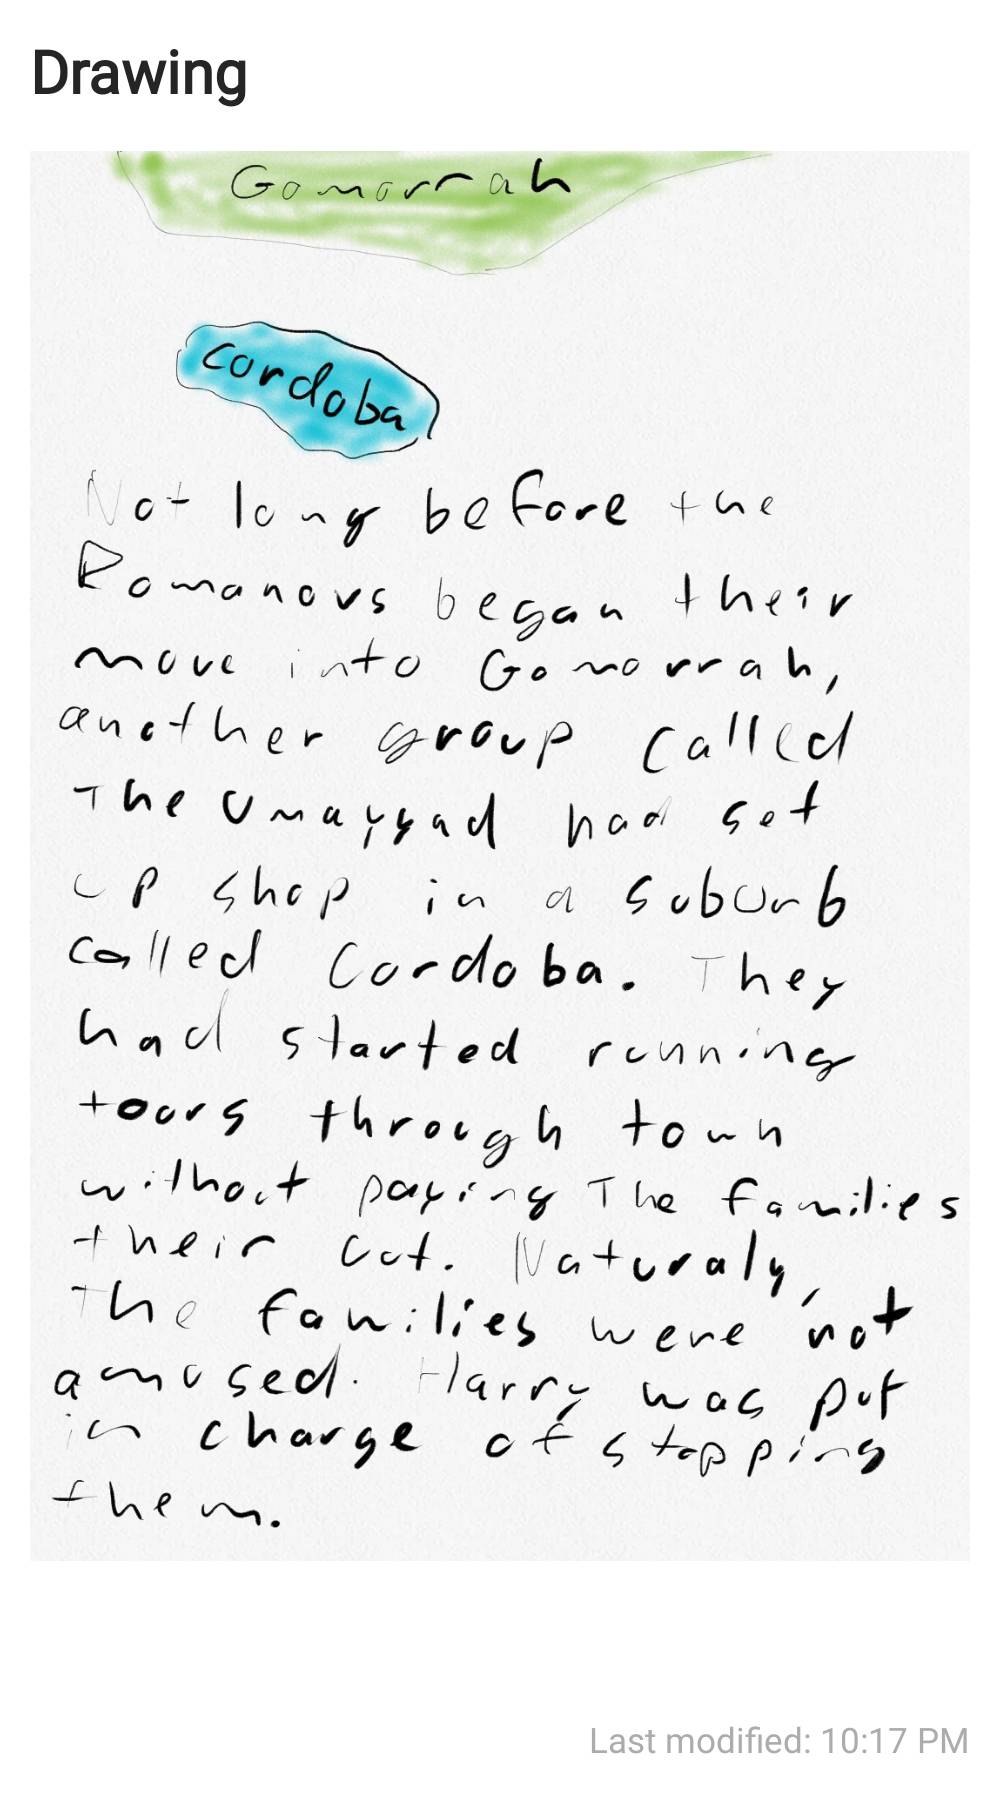 Drawing
Gomorrah
cordoba
Not long before the
Romanovs began their
move into Gomorrah,
another group called
The Umayyad had set
up shop in a suburb
called Cordoba. They
had started running
tours through town
without paying The families
their cut. Naturaly,
The families were not
amused. Harry was put
in charge of stopping
them.
Last modified: 10:17 PM